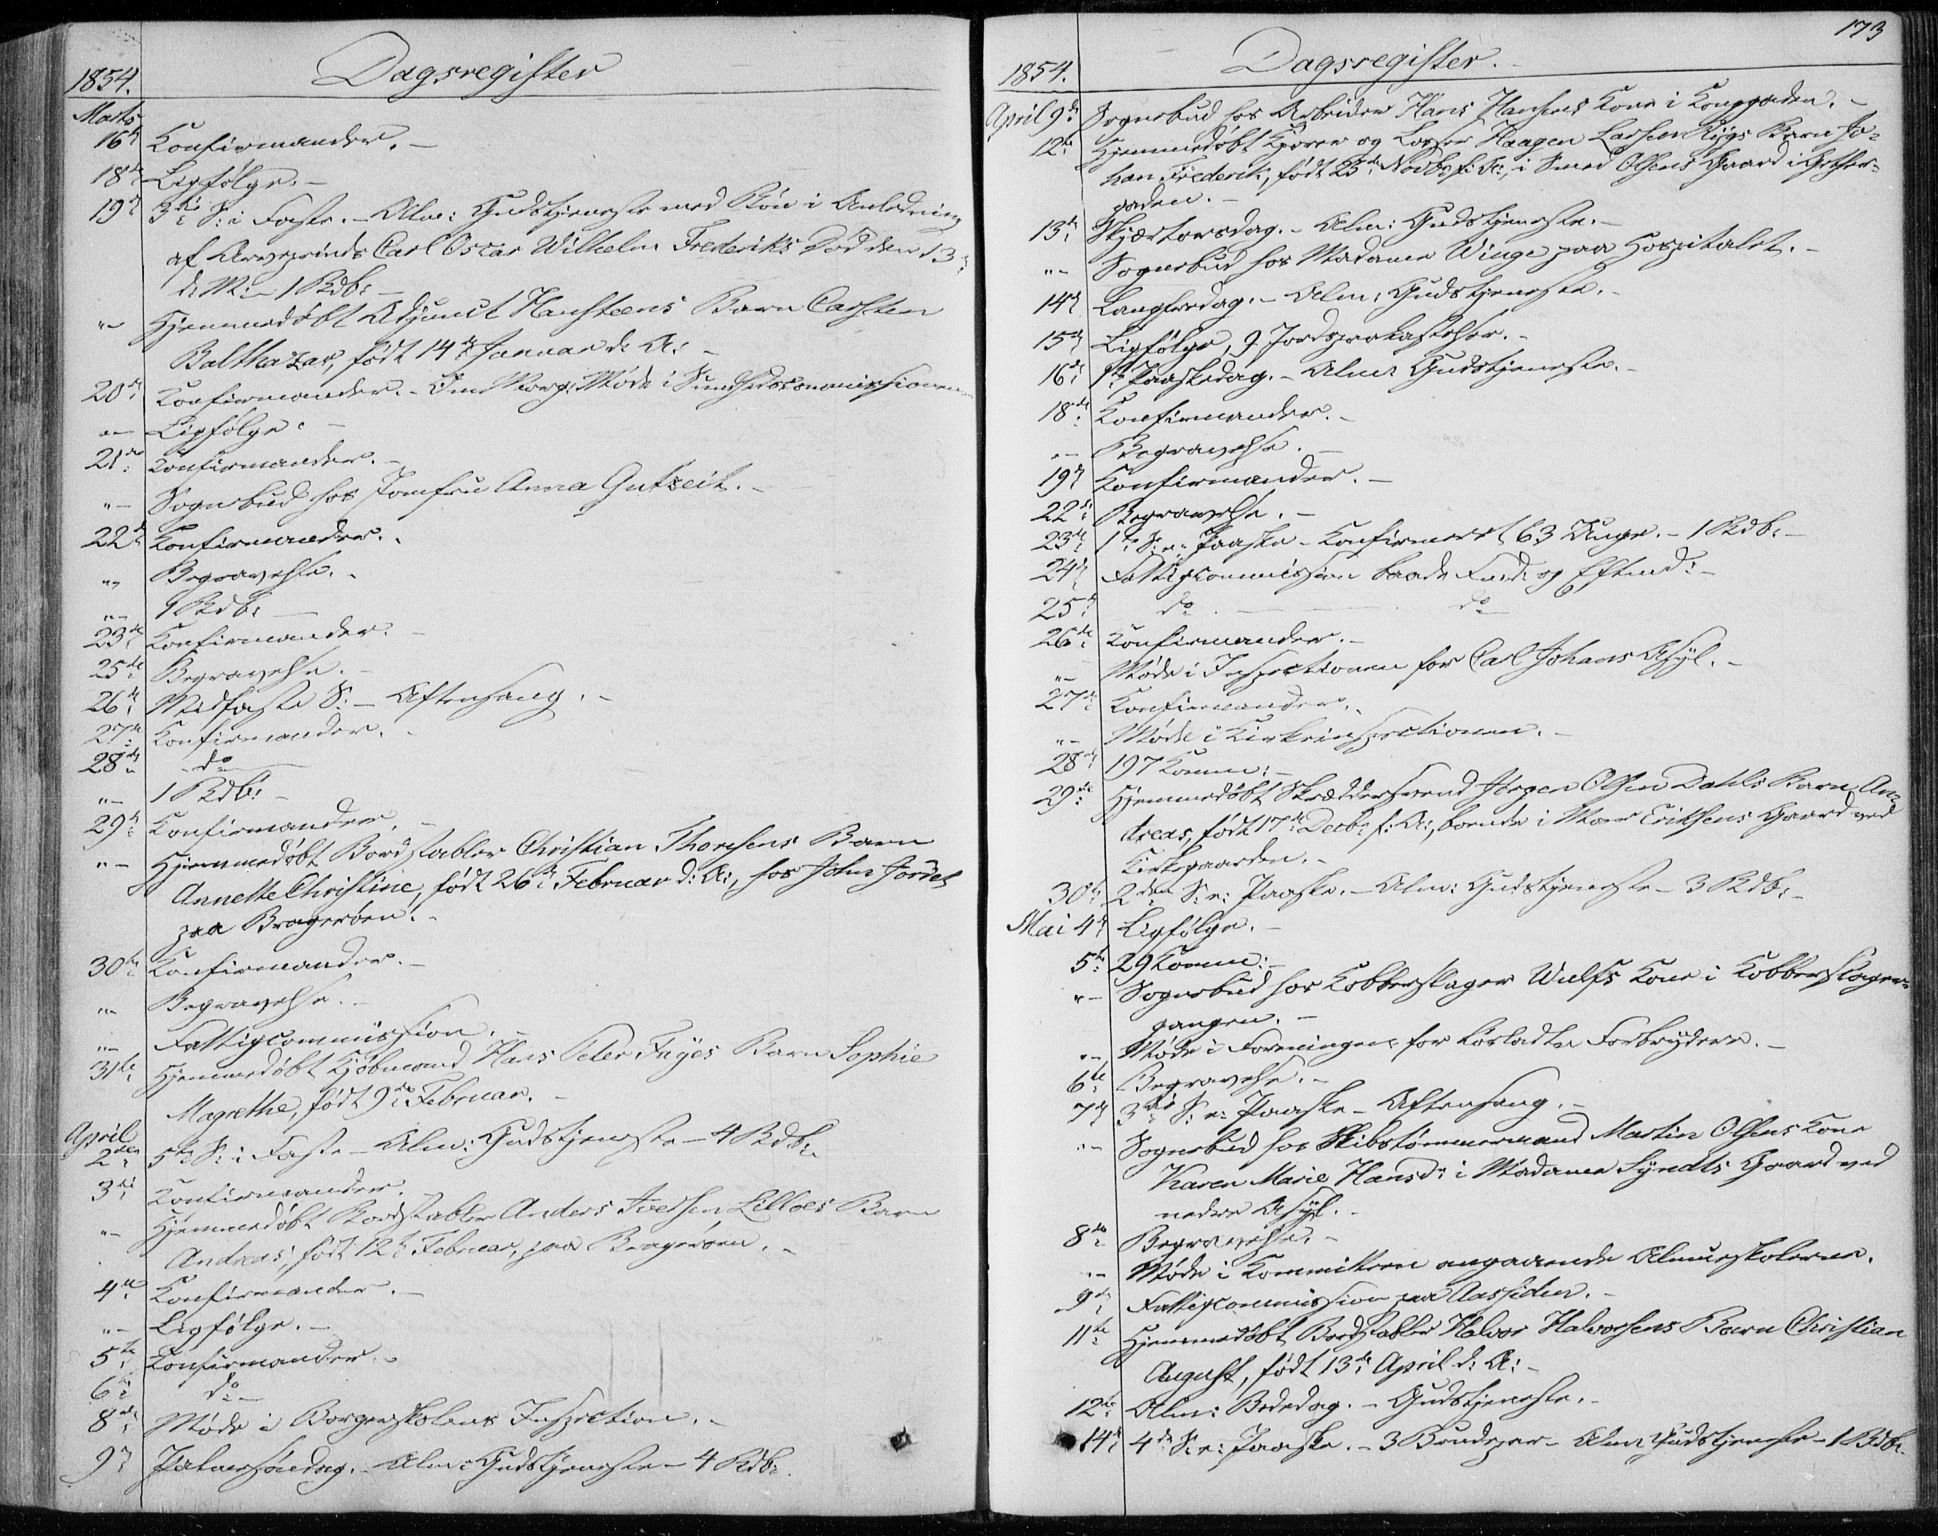 Dagsregister
1854.
Marts
16de Konfirmander. –
18de Ligfølge. –
19de 3die S: i Faste. – Alm: Gudstjeneste med Bøn i Anledning
af Arveprinds Carl Oscar Wilhelm Frederiks Død den 13de
d: M: – 1 Brdb: –
"– Hjemmedøbt Adjunct Hansteens Barn Carsten
Balthazar, født 14de Januar d: A: –
20de Konfirmander. – Møde i Sundhedscommissionen
"– Ligfølge. –
21de Konfirmander. –
"– Sognebud hos Jomfru Anna Gutzeit. –
22de Konfirmander. –
"– Begravelse. –
"– 1 Brdb: –
23de Konfirmander. –
25de Begravelse. –
26de Midfaste S: – Aftensang. –
27de Konfirmander. –
28de do –
"– 1 Brdb: –
29de Konfirmander. –
"– Hjemmedøbt Bordstabler Christian Thoresens Barn
Annette Christine, født 26de Februar d: A:, hos John Jordet
paa Bragerøen. –
30te Konfirmander. –
"– Begravelse. –
"– Fattigcommission. –
31te Hjemmedøbt Kjøbmand Hans Peter Fayes Barn Sophie
Magrethe, født 9de Februar. –
April
2den 5te S: i Faste – Alm: Gudstjeneste – 4 Brdb:
3die Konfirmander.
"– Hjemmedøbt Bordstabler Anders Iversen Lilloes Barn
Andreas, født 12te Februar, paa Bragerøen. –
4de Konfirmander. –
"– Ligfølge. –
5te Konfirmander. –
6te do –
8de Møde i Borgerskolens Inspection. –
9de Palmesøndag. – Alm: Gudstjeneste – 4 Brdb:
173
Dagsregister. –
1854.
April 9de Sognebud hos Arbeider Hans Hansens Kone i Konggaden. –
12te Hjemmedøbt Kjører og Losser Haagen Larsen Rygs Barn Jo=
han Frederik, født 25de Novbr f: A:, i Smed Olsens Gaard i
gaden. –
13de Skjærtorsdag. – Alm: Gudstjeneste. –
"– Sognebud hos Madame Winge paa Hospitalet. –
14de Langfredag. – Alm: Gudstjeneste. –
15de Ligfølge, 9 Jordspaakastelser. –
16de 1ste Paaskedag. – Alm: Gudstjeneste. –
18de Konfirmander. –
"– Begravelse. –
19de Konfirmander. –
22de Begravelse. –
23de 1ste S: e: Paaske – Konfirmeret 63 Unge. – 1 Brdb: –
24de Fattigcommission baade Form: og Efterm: –
25de do – do –
26de Konfirmander. –
"– Møde i Inspectionen for Carl Johans Asyl. –
27de Konfirmander. –
"– Møde i Kirkeinspectionen. –
28de 197 Komm: –
29de Hjemmedøbt Skræddersvend Jørgen Olsen Dahls Barn An=
dreas, født 17de Decbr f: A:, boende i Mons Eriksens Gaard ved
Kirkegaarden. –
30te 2den S: e: Paaske. – Alm: Gudstjeneste – 3 Brdb: –
Mai 4de Ligfølge. –
5te 29 Komm: –
"– Sognebud hos Kobberslager Wulfs Kone i Kobberslager=
gangen. –
"– Møde i Foreningen for løsladte Forbrydere. –
6te Begravelse. –
7de 3die S: e: Paaske – Aftensang. –
"– Sognebud hos Skibstømmermand Martin Olsens Kone
Karen Marie Hansd: i Madame Syndts Gaard ved
nedre Asyl. –
8de Begravelse. –
"– Møde i Kommitteen angaaende Almueskolerne.
9de Fattigcommission paa Aassiden. –
11te Hjemmedøbt Bordstabler Halvor Halvorsens Barn Christian
August, født 13de April d: A: –
12te Alm: Bededag. – Gudstjeneste. –
14de 4de S: e: Paaske. – 3 Brudepar – Alm: Gudstjeneste – 1 Brdb: